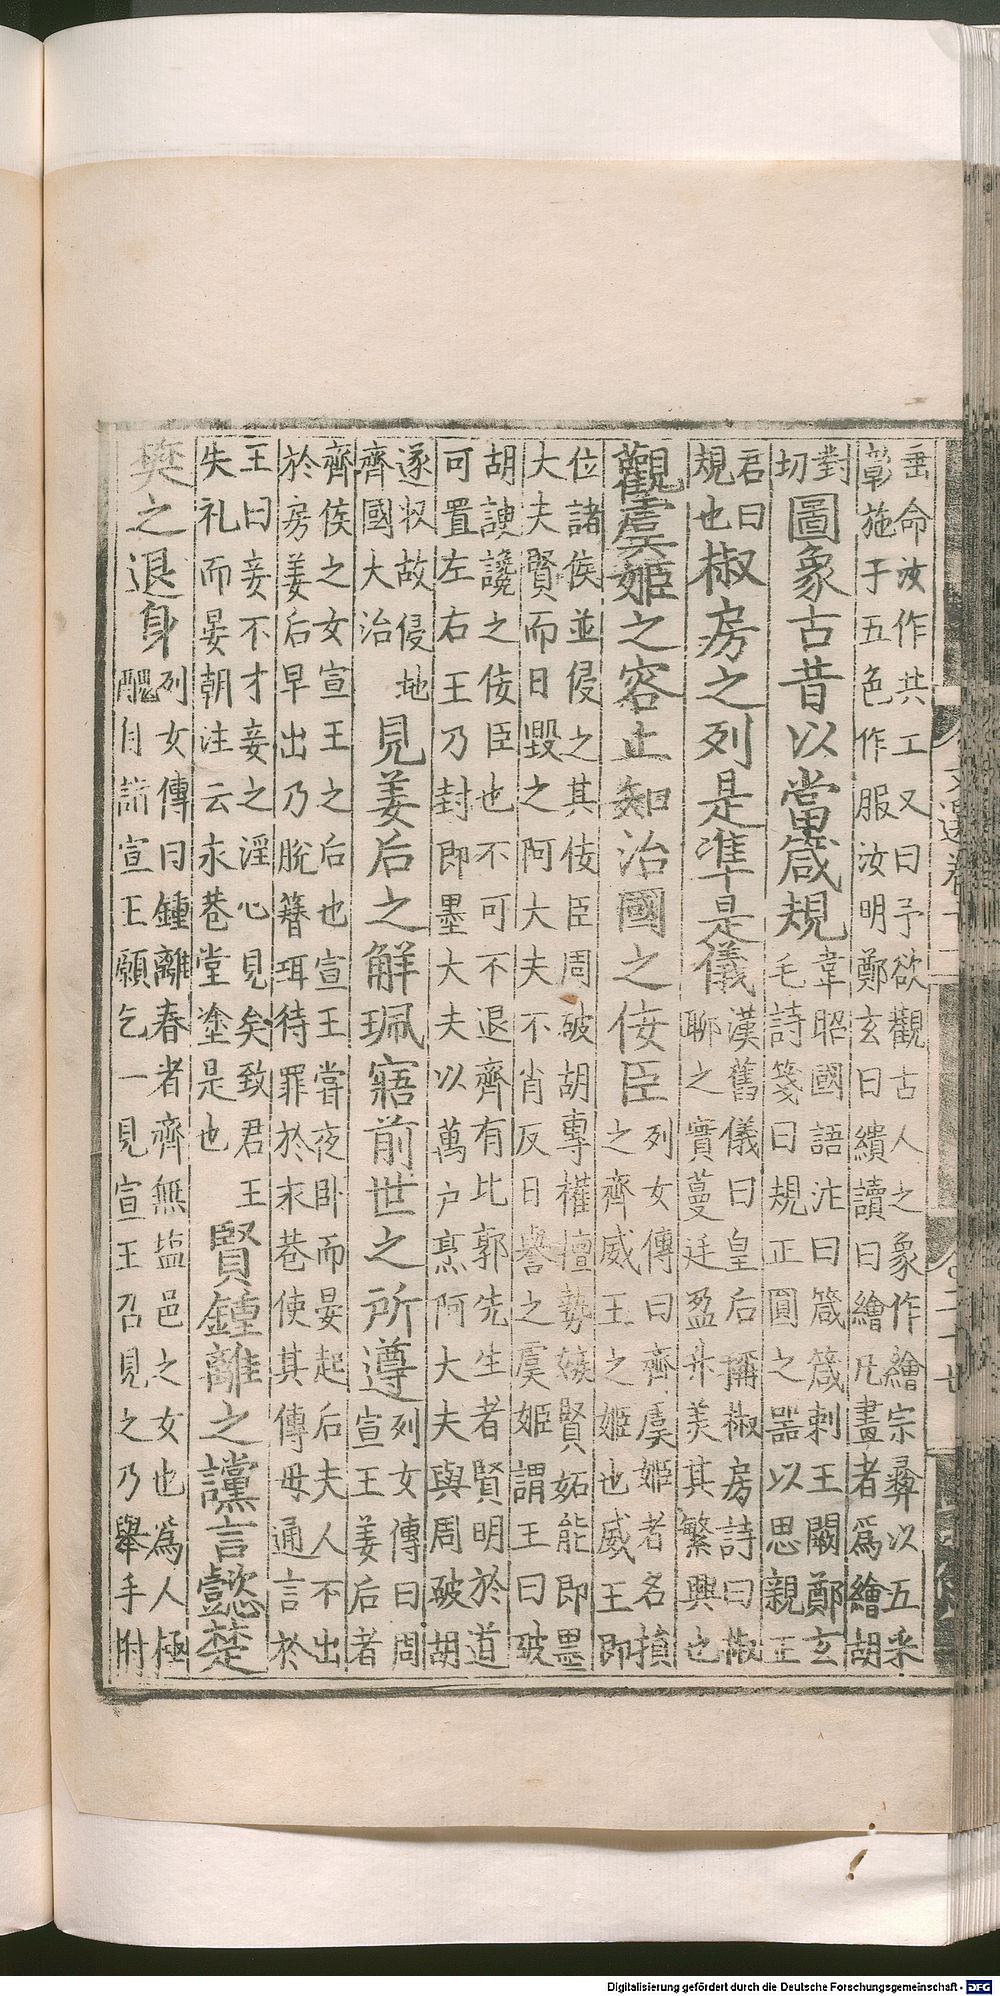 垂命汝作共工又曰予欲觀古人之象作繪宗彝以五采
彰施于五色作服汝明鄭玄曰繢讀曰繪凡畫者爲繪胡
對
切
圖象古昔以當箴規
韋昭國語注曰箴箴刺王闕鄭玄
毛詩箋曰規正圓之噐以思親正
君曰
規也
椒房之列是準是儀
漢舊儀曰皇后稱椒房詩曰椒
聊之實蔓延盈升美其繁興也
觀虞姬之容止知治國之佞臣
列女傳曰齊虞姬者名損
之齊威王之姬也威王即
位諸侯並侵之其佞臣周破胡專權擅勢嫉賢妬能即墨
大夫賢而日毀之阿大夫不肖反日譽之虞姬謂王曰破
胡諛讒之佞臣也不可不退齊有北郭先生者賢明於道
可置左右王乃封即墨大夫以萬户烹阿大夫與周破胡
遂収故侵地
齊國大治
見姜后之解珮寤前世之所遵
列女傳曰周
宣王姜后者
齊侯之女宣王之后也宣王嘗夜卧而晏起后夫人不出
於房姜后早出乃脫簪珥待罪於永巷使其傅母通言於
王曰妾不才妾之淫心見矣致君王
失礼而晏朝注云永巷堂塗是也
賢鍾離之讜言懿楚
樊之退身
列女傳曰鍾離春者齊無盐邑之女也爲人極
醜自詣宣王願乞一見宣王召見之乃舉手拊
Digitalisierung gefördert durch die Deutsche Forschungsgemeinschaft - DFG